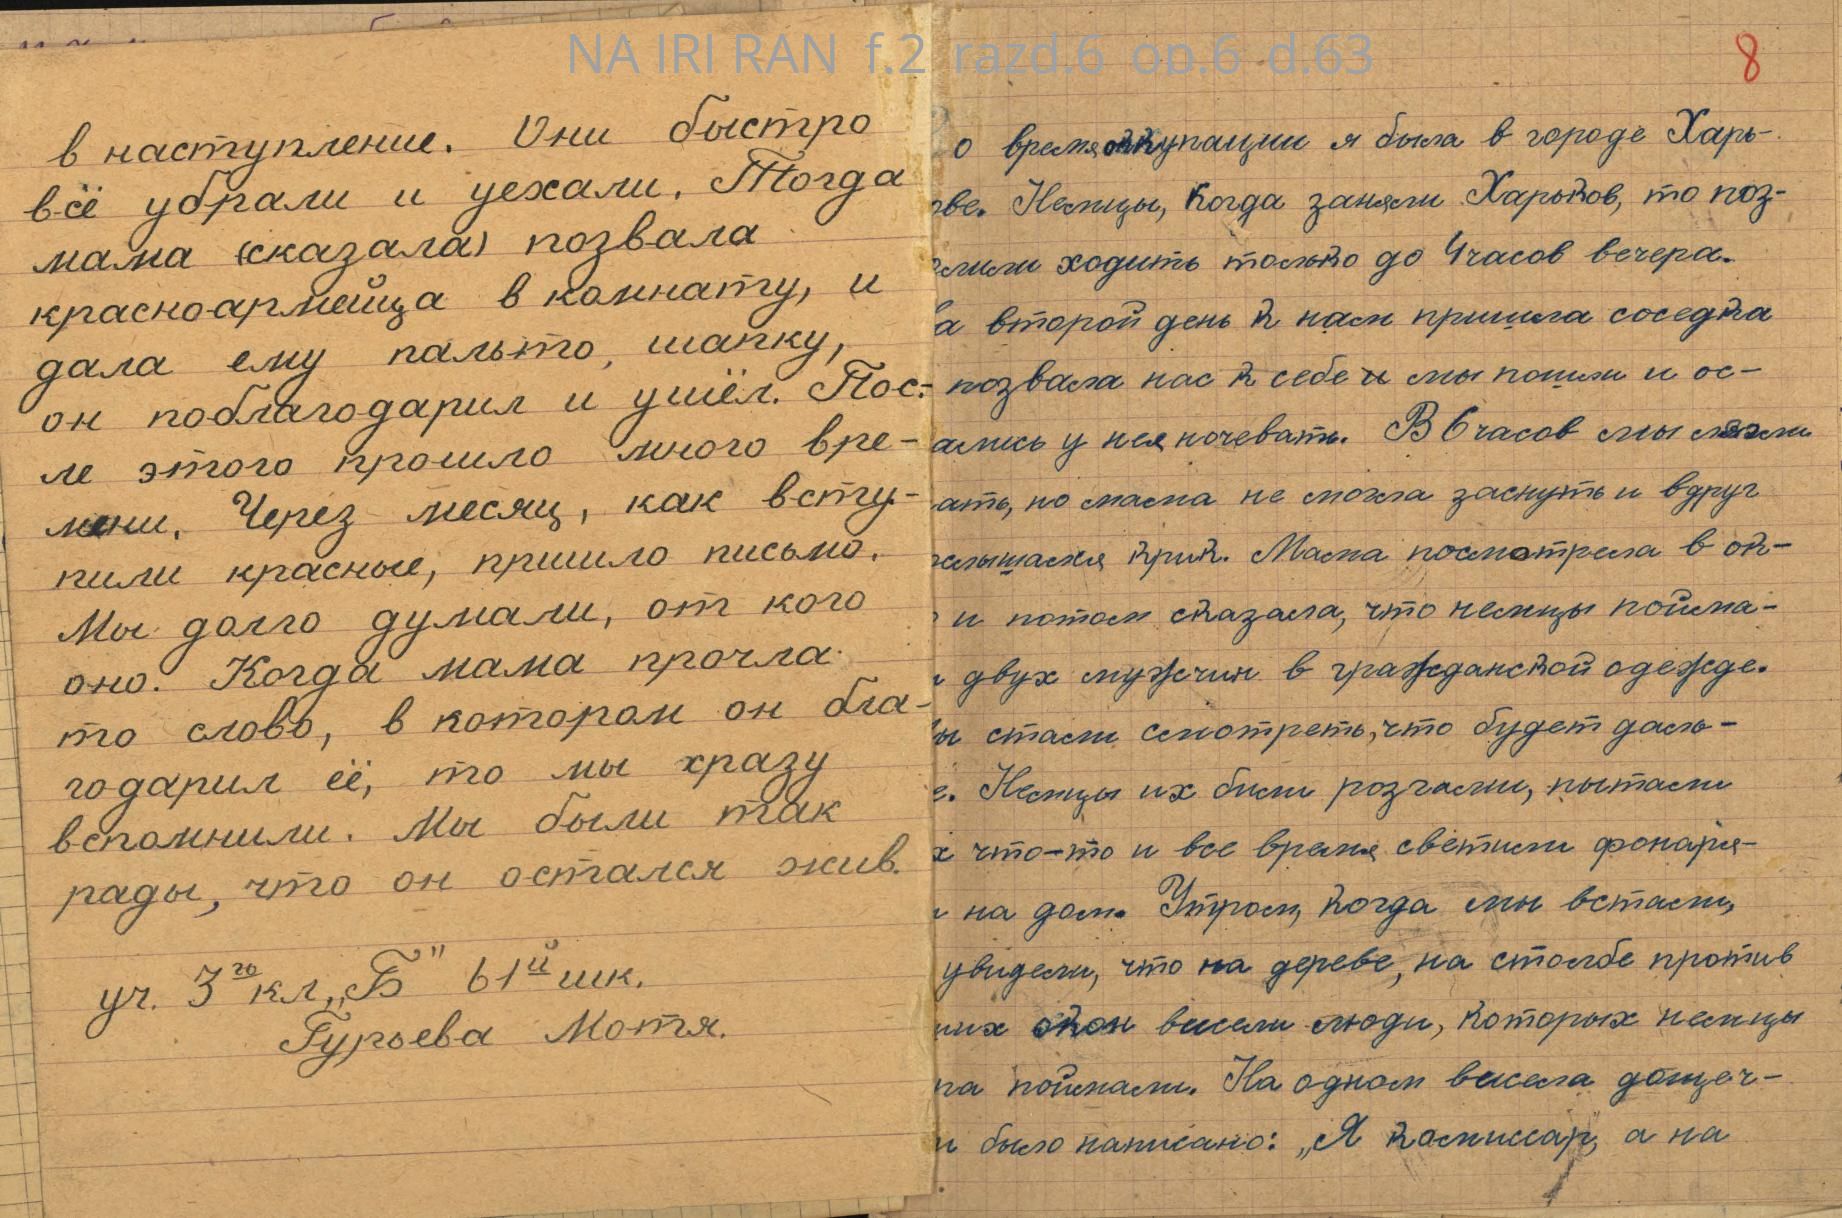 NA IRI RAN f.2 razd.6 op.6 d.63
в наступление. Они быстро
всё убрали и уехали. Тогда
мама (сказала) позвала
красноармейца в комнату, и
дала ему пальто, шапку,
он поблагодарил и ушёл. Пос-
ле этого прошло много вре-
мени. Через месяц, как всту-
пили красные, пришло письмо.
Мы долго думали, от кого
оно. Когда мама прочла
то слово, в котором он бла-
годарил её, то мы сразу
вспомнили. Мы были так
рады, что он остался жив.
уч. 3го кл. „Б" 61й шк.
Гурьева Мотя.
8
о время оккупации я была в городе Харь-
ове. Немцы, когда заняли Харьков, то поз-
олили ходить только до 4 часов вечера.
а второй день к нам пришла соседка
позвала нас к себе и мы пошли и ос-
ались у нея ночевать. В 6 часов мы лягли
ать, но мама не могла заснуть и вдруг
слышался крик. Мама посмотрела в ок-
и потом сказала, что немцы пойма-
и двух мужчин в гражданской одежде.
ы стали смотреть, что будет даль-
е. Немцы их били розгами, пытали
х что-то и все время светили фонаря-
и на дом. Утром, когда мы встали,
увидели, что на дереве, на столбе против
ших окон висели люди, которых немцы
ра поймали. На одном висела дощеч-
и было написано: „Я комиссар", а на